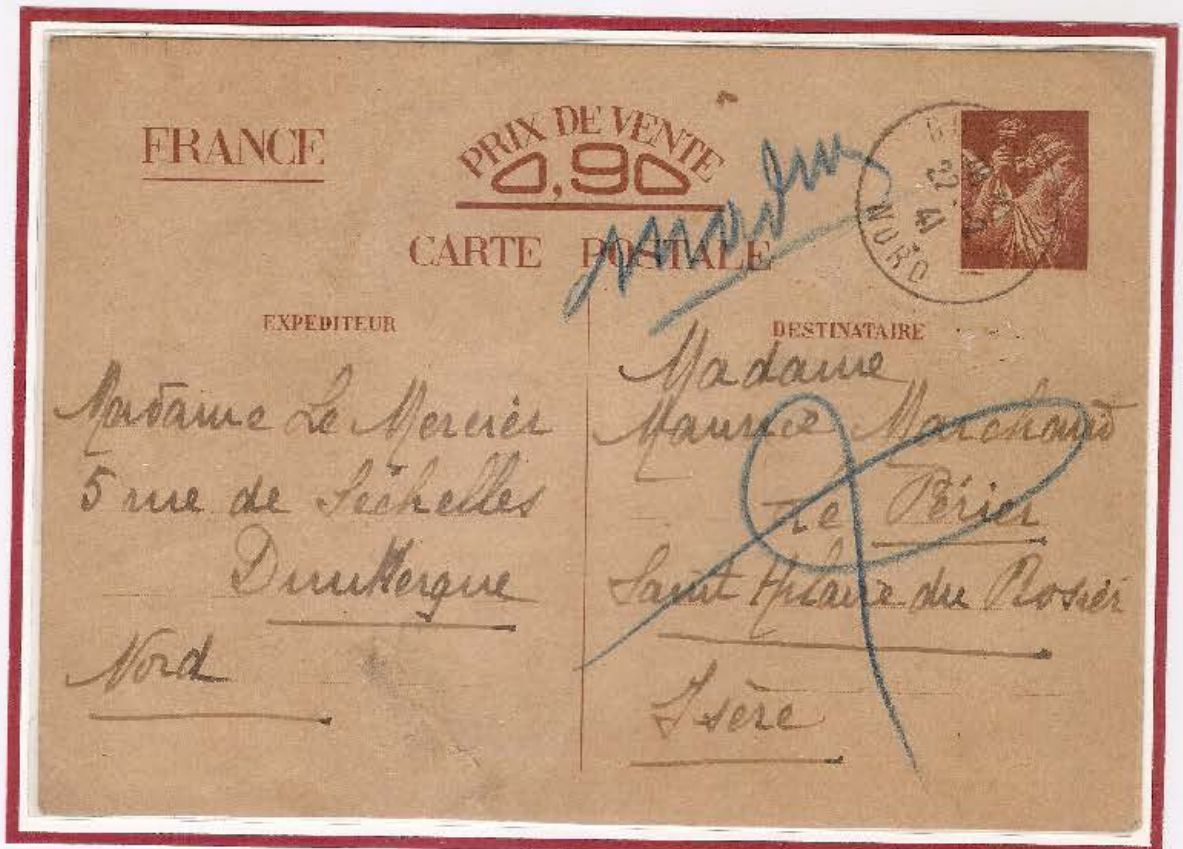 FRANCE
PRIX DE VENTE
0,90
CARTE POSTALE
22
41
NORD
EXPEDITEUR
Madame Le Mercier
5 rue de Séchelles
Dunkerque
Nord
DESTINATAIRE
Madame
Maurice Marchand
Le Périer
Saint Hilaire du Rosier
Isère